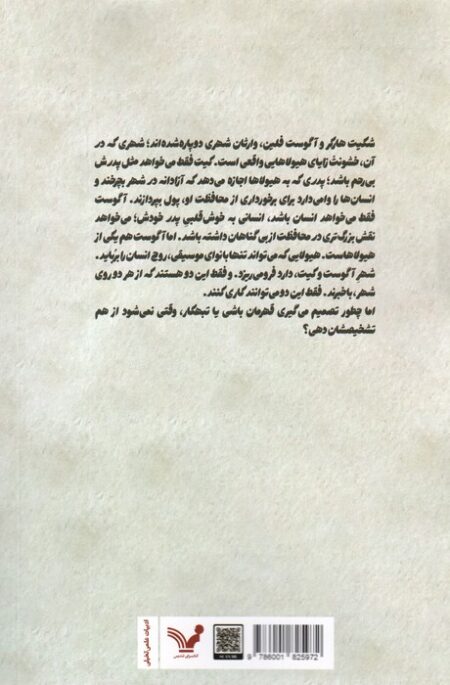 شگیت هارگر و آگوست فلین، وارثان شهری دوپاره‌شده‌اند؛ شهری که در
آن، خشونت زایای هیولاهایی واقعی است. کیت فقط می‌خواهد مثل پدرش
بی‌رحم باشد؛ پدری که به هیولاها اجازه می‌دهد آزادانه در شهر بچرخند و
انسان‌ها را وامی‌دارد برای برخورداری از محافظت او، پول بپردازند. آگوست
فقط می‌خواهد انسان باشد، انسانی به خوش‌قلبیِ پدر خودش؛ می‌خواهد
نقش بزرگ‌تری در محافظت از بی‌گناهان داشته باشد. اما آگوست هم یکی از
هیولاهاست. هیولایی که می‌تواند تنها با نوای موسیقی، روح انسان را برُباید.
شهرِ آگوست و کیت، دارد فرومی‌ریزد. و فقط این دو هستند که از هر دو روی
شهر، باخبرند. فقط این دو می‌توانند کاری کنند.
اما چطور تصمیم می‌گیری قهرمان باشی یا تبهکار، وقتی نمی‌شود از هم
تشخیصشان دهی؟
ادبیات علمی تخیلی
کتابسرای تندیس
9 786001 825972